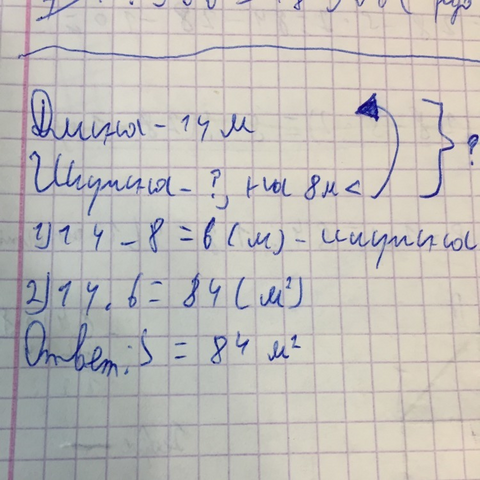 Длина - 14 м
Ширина - ?, на 8м < } ?
1) 14 - 8 = 6 (м) - ширина
2) 14 . 6 = 84 (м²)
Ответ: S = 84 м²